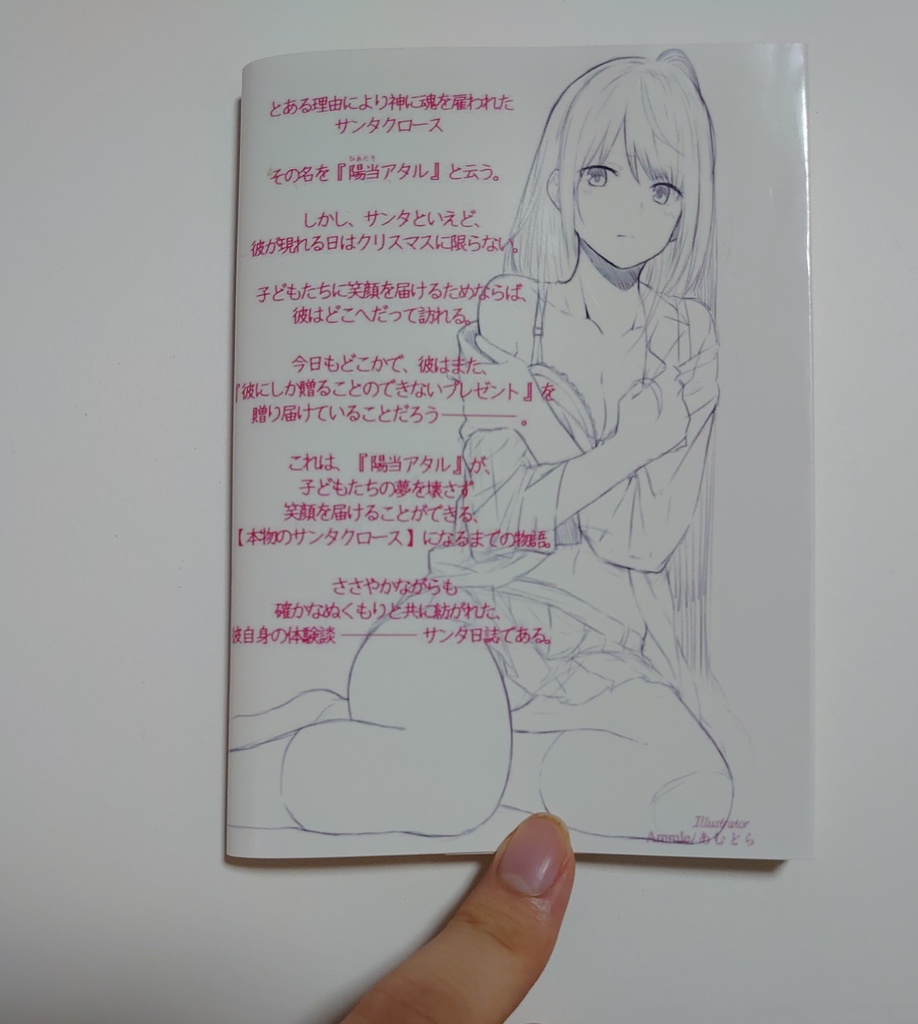 とある理由により神に魂を雇われた
サンタクロース
ひあたり
その名を『陽当アタル』と云う。
しかし、サンタといえど、
彼が現れる日はクリスマスに限らない。
子どもたちに笑顔を届けるためならば、
彼はどこへだって訪れる。
今日もどこかで、彼はまた、
『彼にしか贈ることのできないプレゼント』を
贈り届けていることだろう――――。
これは、『陽当アタル』が、
子どもたちの夢を壊さず
笑顔を届けることができる、
【本物のサンタクロース】になるまでの物語。
ささやかながらも
確かなぬくもりと共に紡がれた、
彼自身の体験談――――サンタ日誌である。
Illustrator
Ammle/あむとら